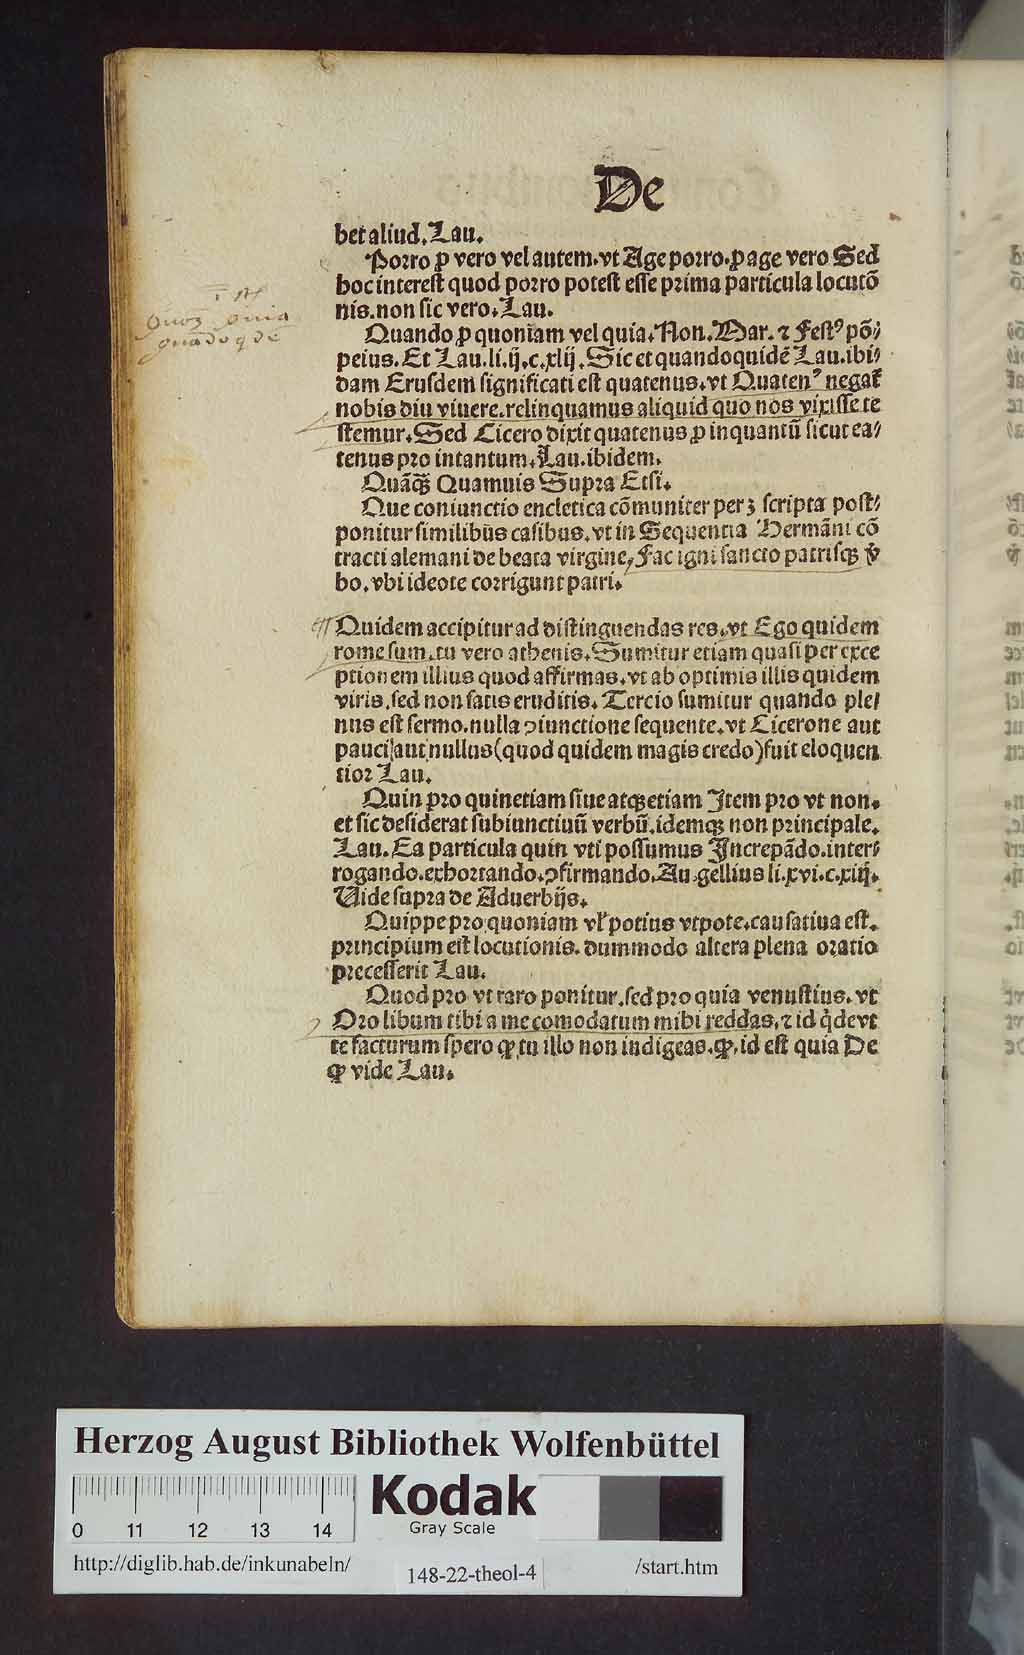 De
bet aliud. Lau.
Porro ꝓ vero vel autem. vt Age porro. ꝓ age vero Sed
hoc interest quod porro potest esse prima particula locutō
nis. non sic vero. Lau.
Quando ꝓ quoniam vel quia. Non. Mar. ⁊ Festꝰ pō/
peius. Et Lau. li. ij. c. xlij. Sic et quandoquidē Lau. ibi/
dam Eiusdem significati est quatenus. vt Quatenꝰ negat̄
nobis diu viuere. relinquamus aliquid quo nos vixisse te
stemur. Sed Cicero dixit quatenus ꝓ inquantū sicut ea/
tenus pro intantum. Lau. ibidem.
Quāqꝫ Quamuis Supra Etsi.
Que coniunctio encletica cōmuniter per ꝫ scripta post/
ponitur similibus casibus. vt in Sequentia Hermāni cō
tracti alemani de beata virgine, Fac igni sancto patrisqꝫ v̾
bo. vbi ideote corrigunt patri.
Quidem accipitur ad distinguendas res. vt Ego quidem
rome sum. tu vero athenis. Sumitur etiam quasi per exce
ptionem illius quod affirmas. vt ab optimis illis quidem
viris, sed non satis eruditis. Tercio sumitur quando ple/
nus est sermo. nulla ꝯiunctione sequente. vt Cicerone aut
pauci aut nullus (quod quidem magis credo) fuit eloquen
tior Lau.
Quin pro quinetiam siue atqꝫ etiam Item pro vt non.
et sic desiderat subiunctiuū verbū. idemqꝫ non principale.
Lau. Ea particula quin vti possumus Increpādo. inter/
rogando. exhortando. ꝯfirmando. Au. gellius li. xvi. c. xiij.
Uide supra de Aduerbijs.
Quippe pro quoniam vl̓ potius vtpote. causatiua est.
principium est locutionis. dummodo altera plena oratio
precesserit Lau.
Quod pro vt raro ponitur. sed pro quia venustius. vt
Oro libum tibi a me comodatum mihi reddas, ⁊ id q̇devt
te facturum spero ꝙ tu illo non indigeas. ꝙ. id est quia De
ꝙ vide Lau.
quoꝫ quia
quādoqde
Herzog August Bibliothek Wolfenbüttel
0 11 12 13 14
Kodak
Gray Scale
http://diglib.hab.de/inkunabeln/
148-22-theol-4
/start.htm